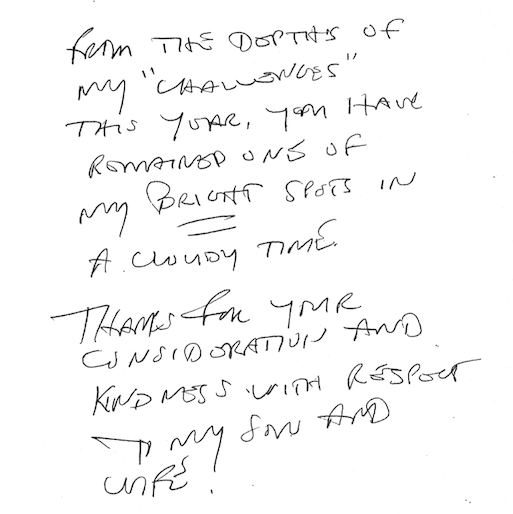 From THE DEPTHS OF
MY "CHALLENGES"
THIS YEAR, YOU HAVE
REMAINED ONE OF
MY BRIGHT SPOTS IN
A CLOUDY TIME.
THANKS FOR YOUR
CONSIDERATION AND
KINDNESS WITH RESPECT
TO MY SON AND
WIFE.